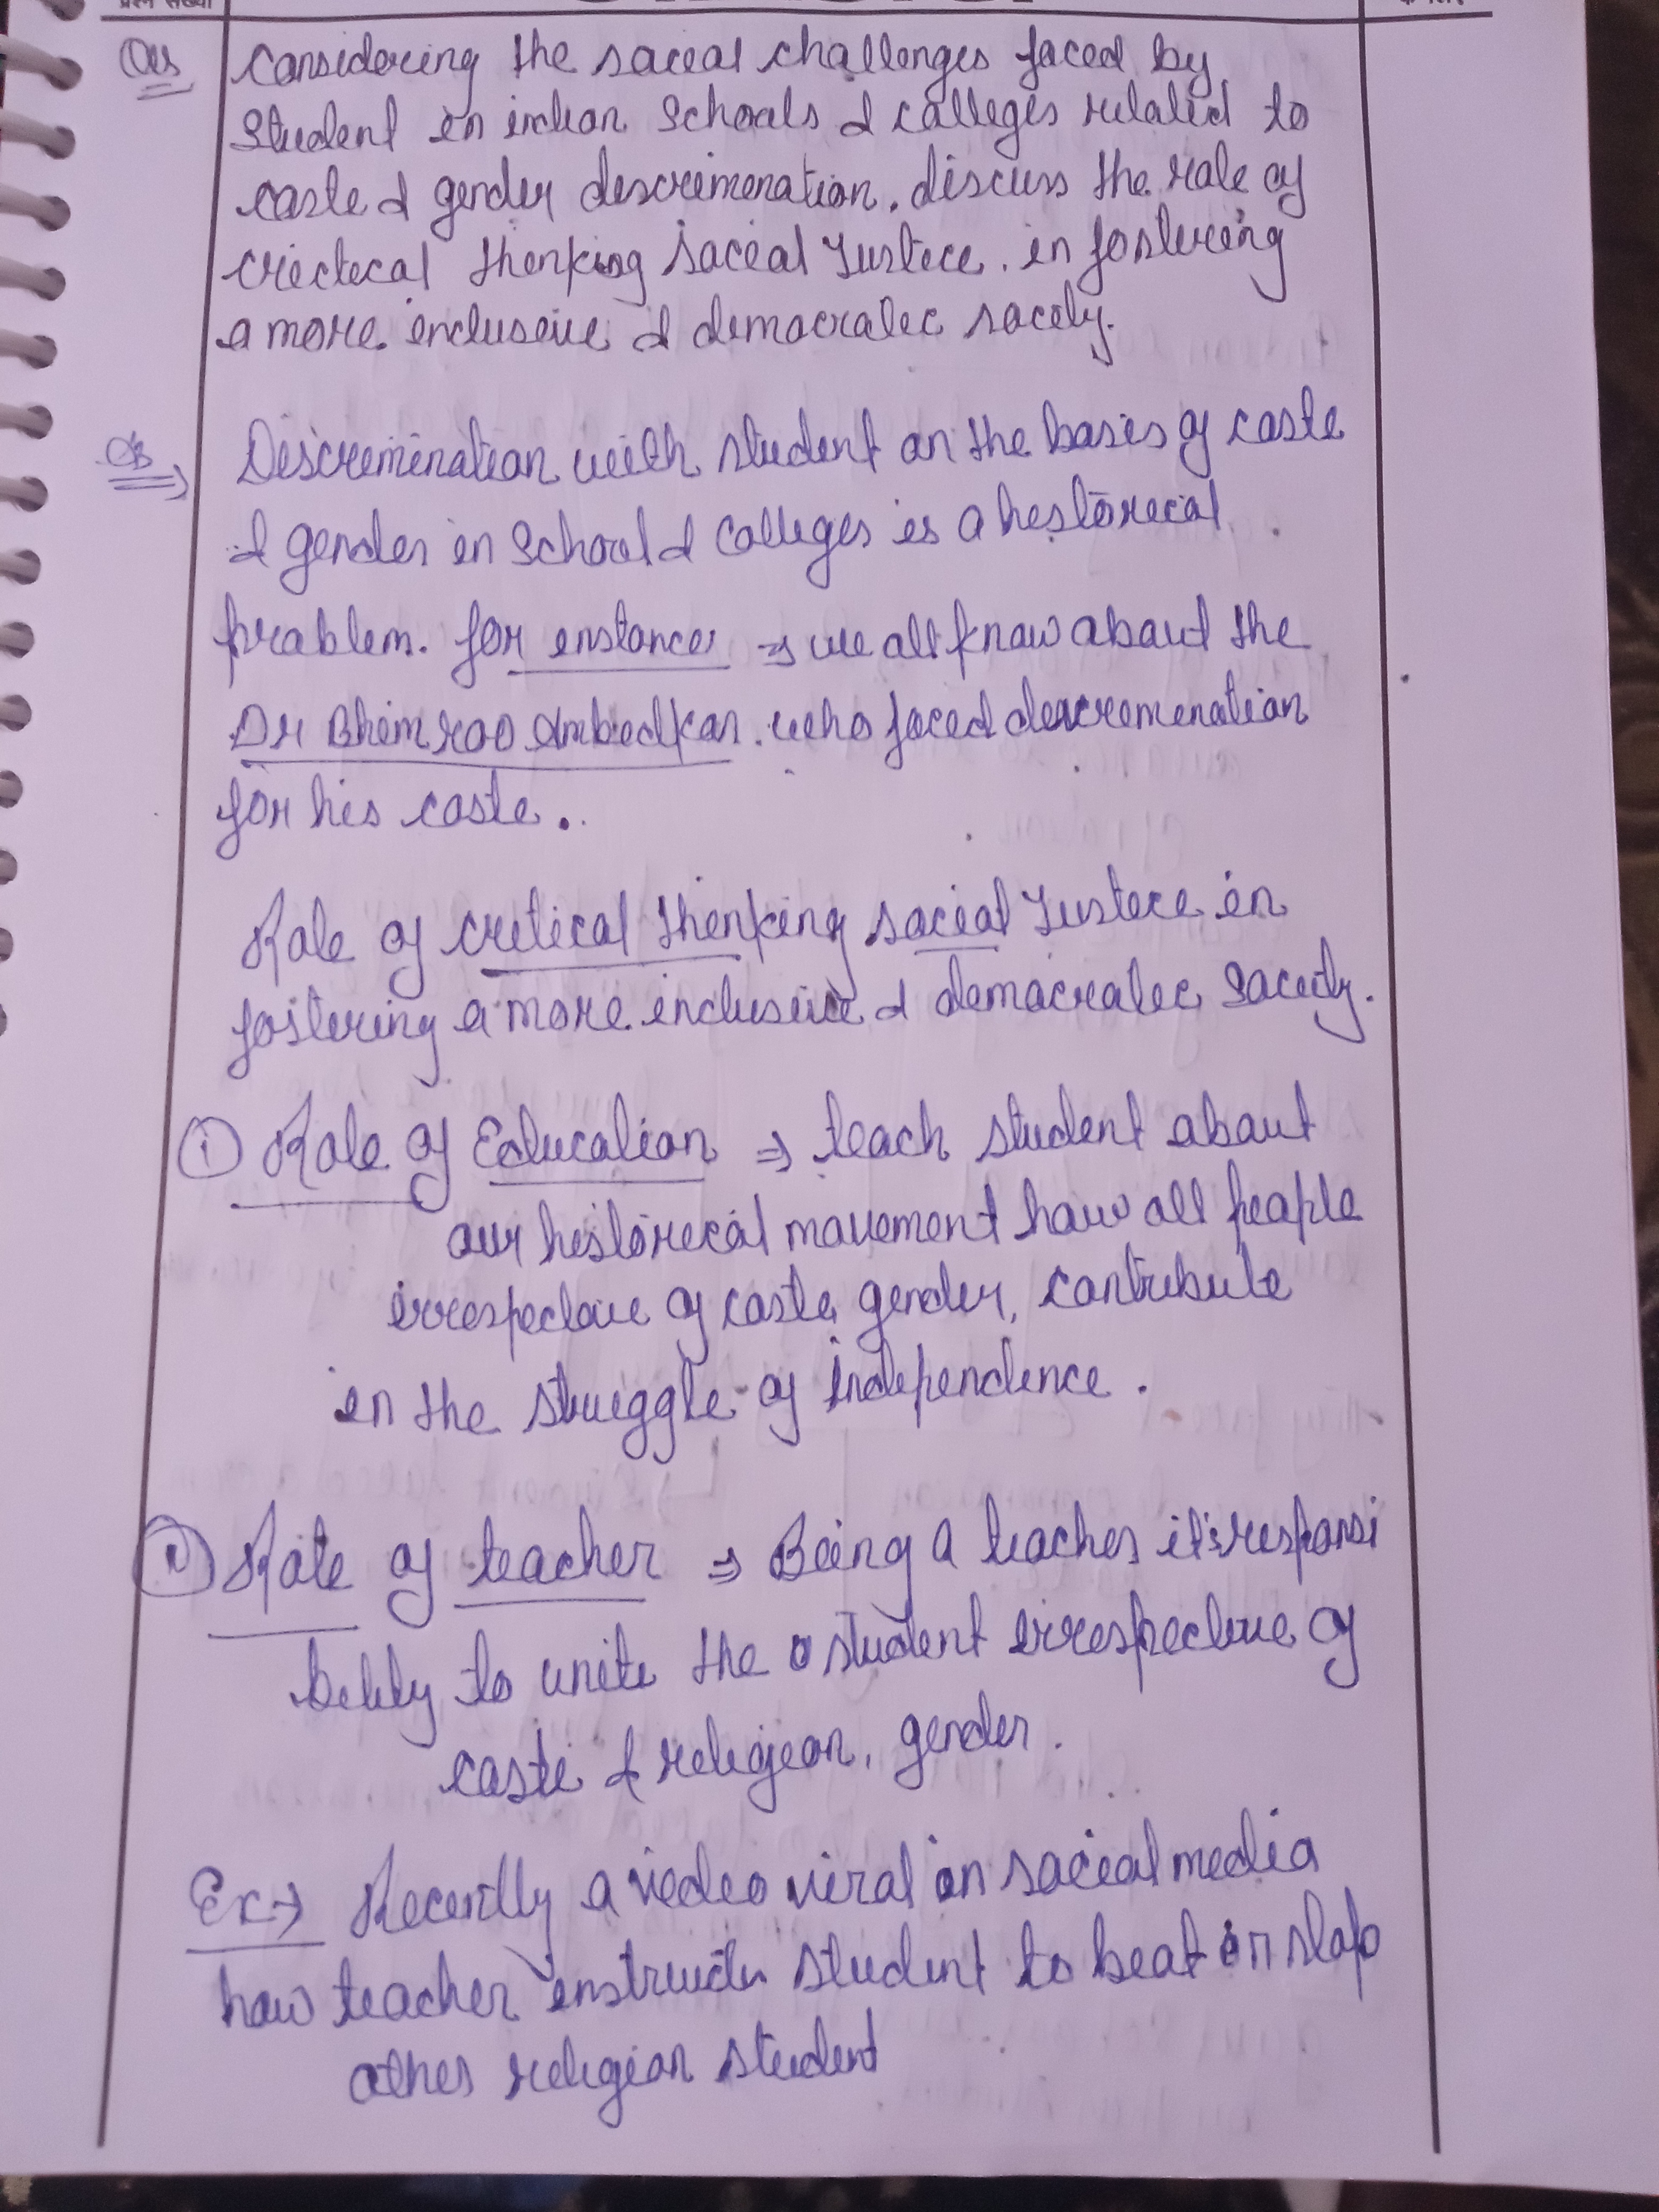 प्रश्न संख्या
Qus Considering the social challenges faced by
student in indian Schools & colleges related to
caste & gender descrimenation. discuss the role of
criectecal thenking social Justece. in fostering
a more. inclusive & democratec socety.
Descremenation with student on the basis of caste
& gender in School & Colleges is a hestorecal
problem. for enstance ⇒ we all know about the
Dr Bhim rao Ambedkar. who faced descremenation
for his caste..
Role of critical thenking social Justece in
fostering a more inclusive & democratec Socety.
① Role of Education ⇒ teach student about
our hestorecal movement how all people
irrespective of caste, gender, contribute
in the struggle of independence.
Role of teacher ⇒ Being a teacher it's responsi
belity to unite the student irrespective of
caste & religeon, gender.
Ex→ Recently a video viral on social media
how teacher enstructer student to beat or slap
other religion student